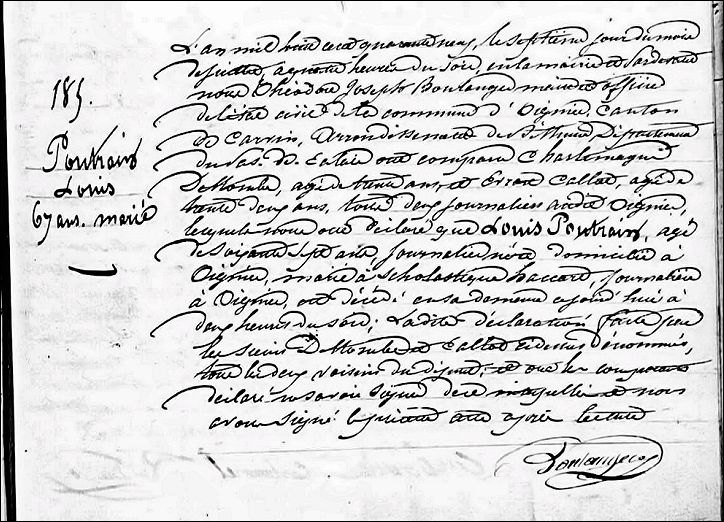 185.
Poutrain
Louis
67 ans. marié
L'an mil huit cent quarante neuf, le septième jour du mois
de juillet, à quatre heures du soir, en la mairie et pardevant
nous Théodore Joseph Boulanger maire et officier
de l'état civil de la commune d'Oignies, Canton
de Carvin, Arrondissement de Béthune, Département
du Pas-de-Calais ont comparu Charlemagne
Delhombe, agé de trente ans, et Callot, agé de
trente deux ans, tous deux journaliers audit Oignies,
lesquels nous ont déclaré que Louis Poutrain, agé
de soixante sept ans, journalier, né et domicilié à
Oignies, marié à Scholastique, journalière
à Oignies, est décédé en sa demeure aujourd'hui à
deux heures du soir; Ladite déclaration faite par
les sieurs Delhombe et Callot ci dessus dénommés,
tous les deux voisins du défunt; et ont les comparans
déclaré ne savoir signer de ce interpellés et nous
avons signé le présent acte après lecture